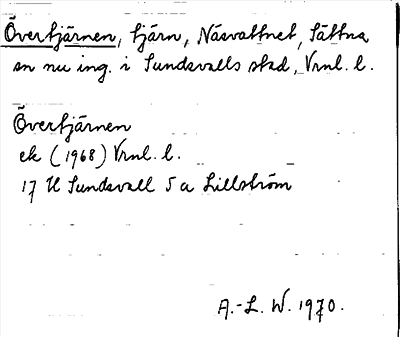 Övertjärnen, tjärn, Näsvattnet, Sättna
sn nu ing. i Sundsvalls stad, Vrnl. l.
Övertjärnen
ek (1968) Vrnl. l.
17 H Sundsvall 5 a Lillström
A.-L. W. 1970.